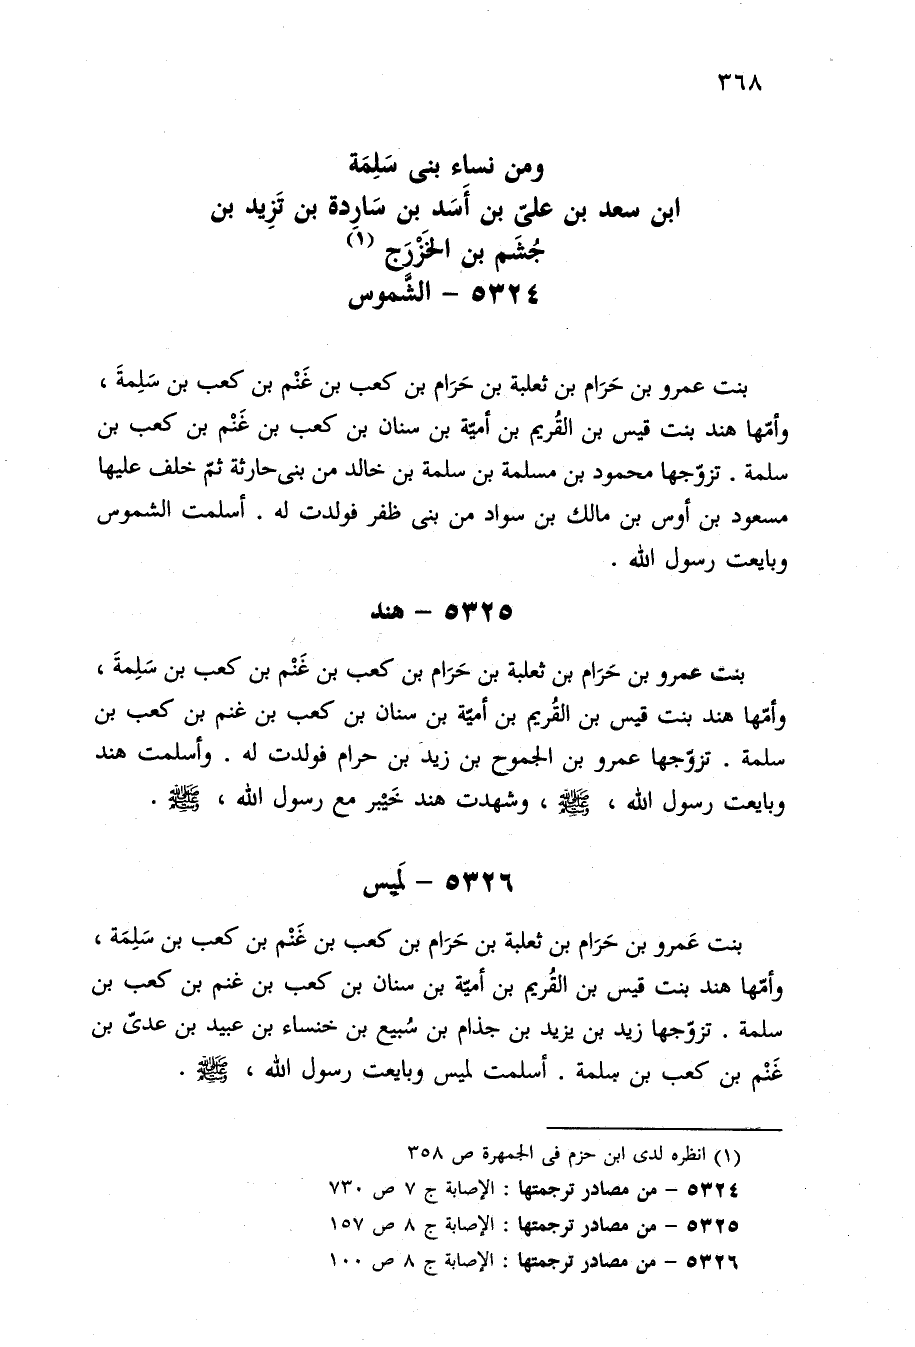 ٣٦٨
ومن نساء بنى سَلِمَة
ابن سعد بن علىّ بن أَسَد بن سَارِدة بن تَزِيد بن
جُشَم بن الخَزْرَج (١)
٥٣٢٤ – الشَّموس
بنت عمرو بن حَرَام بن ثعلبة بن حَرَام بن كعب بن غَنْم بن كعب بن سَلِمةَ ،
وأمّها هند بنت قيس بن القُريم بن أميّة بن سنان بن كعب بن غَنْم بن كعب بن
سلمة . تزوّجها محمود بن مسلمة بن سلمة بن خالد من بنى حارثة ثمّ خلف عليها
مسعود بن أوس بن مالك بن سواد من بنى ظفر فولدت له . أسلمت الشموس
وبايعت رسول الله .
٥٣٢٥ – هند
بنت عمرو بن حَرَام بن ثعلبة بن حَرَام بن كعب بن غَنْم بن كعب بن سَلِمةَ ،
وأمّها هند بنت قيس بن القُريم بن أميّة بن سنان بن كعب بن غنم بن كعب بن
سلمة . تزوّجها عمرو بن الجموح بن زيد بن حرام فولدت له . وأسلمت هند
وبايعت رسول الله ، ﷺ ، وشهدت هند خَيْبر مع رسول الله ، ﷺ .
٥٣٢٦ – لَميس
بنت عَمرو بن حَرَام بن ثعلبة بن حَرَام بن كعب بن غَنْم بن كعب بن سَلِمَة ،
وأمّها هند بنت قيس بن القُريم بن أميّة بن سنان بن كعب بن غنم بن كعب بن
سلمة . تزوّجها زيد بن يزيد بن جذام بن سُبيع بن خنساء بن عبيد بن عدىّ بن
غَنْم بن كعب بن سلمة . أسلمت لميس وبايعت رسول الله ، ﷺ .
(١) انظره لدى ابن حزم فى الجمهرة ص ٣٥٨
٥٣٢٤ – من مصادر ترجمتها : الإصابة ج ٧ ص ٧٣٠
٥٣٢٥ – من مصادر ترجمتها : الإصابة ج ٨ ص ١٥٧
٥٣٢٦ – من مصادر ترجمتها : الإصابة ج ٨ ص ١٠٠